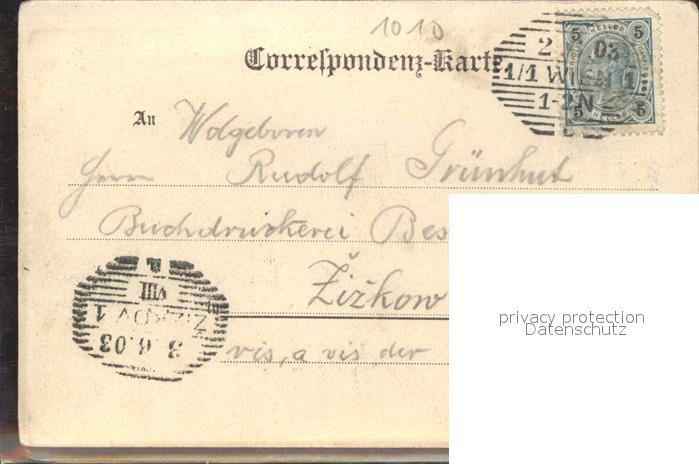 1010
Correspondenz-Karte
5 HELLER 5
2 .03
1/1 WIEN 1
1-2N
5 HELLER 5
An Wolgeboren
Herrn Rudolf Grünhut
Buchdruckerei Bes
Žižkow
vis, a vis der
VIII
ŽIŽKOV 1
3.6.03
privacy protection
Datenschutz